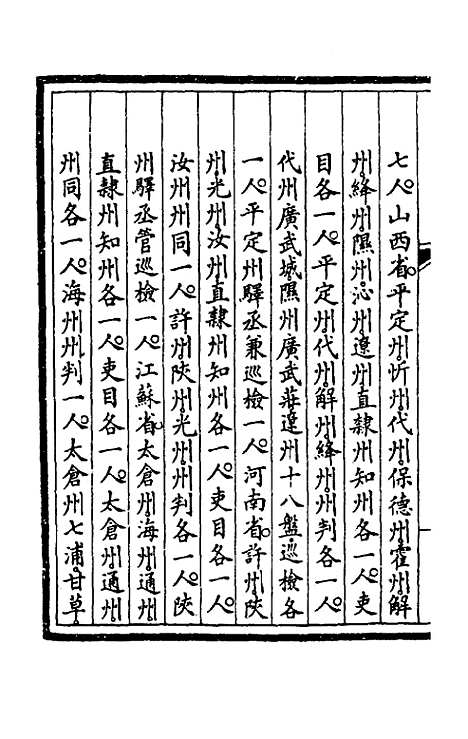 七人山西省平定州忻州代州保德州霍州解
州絳州隰州沁州遼州直隸州知州各一人吏
目各一人平定州代州解州絳州州判各一人
代州廣武城隰州廣武莊遼州十八盤巡檢各
一人平定州驛丞兼巡檢一人河南省許州陝
州光州汝州直隸州知州各一人吏目各一人
汝州州同一人許州陝州光州州判各一人陝
州驛丞管巡檢一人江蘇省太倉州海州通州
直隸州知州各一人吏目各一人太倉州通州
州同各一人海州州判一人太倉州七浦甘草